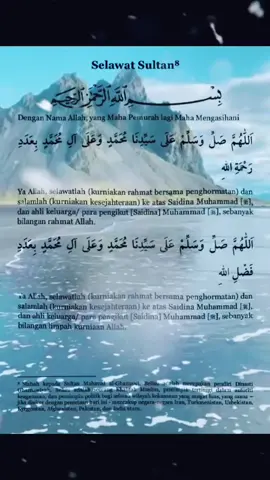 Selawat Sultan⁸
بِسْمِ اللَّهِ الرَّحْمَنِ الرَّحِيمِ
Dengan Nama Allah, yang Maha Pemurah lagi Maha Mengasihani
اَللَّهُمَّ صَلِّ وَسَلِّمْ عَلَى سَيِّدِنَا مُحَمَّدٍ وَعَلَى آلِ مُحَمَّدٍ بِعَدَدِ
رَحْمَةِ اللهِ
Ya Allah, selawatlah (kurniakan rahmat bersama penghormatan) dan
salamlah (kurniakan kesejahteraan) ke atas Saidina Muhammad [ﷺ],
dan ahli keluarga/ para pengikut [Saidina] Muhammad [ﷺ], sebanyak
bilangan rahmat Allah.
اَللَّهُمَّ صَلِّ وَسَلِّمْ عَلَى سَيِّدِنَا مُحَمَّدٍ وَعَلَى آلِ مُحَمَّدٍ بِعَدَدِ
فَضْلِ اللهِ
Ya Allah, selawatlah (kurniakan rahmat bersama penghormatan) dan
salamlah (kurniakan kesejahteraan) ke atas Saidina Muhammad [ﷺ],
dan ahli keluarga/ para pengikut [Saidina] Muhammad [ﷺ], sebanyak
bilangan limpah kurniaan Allah.